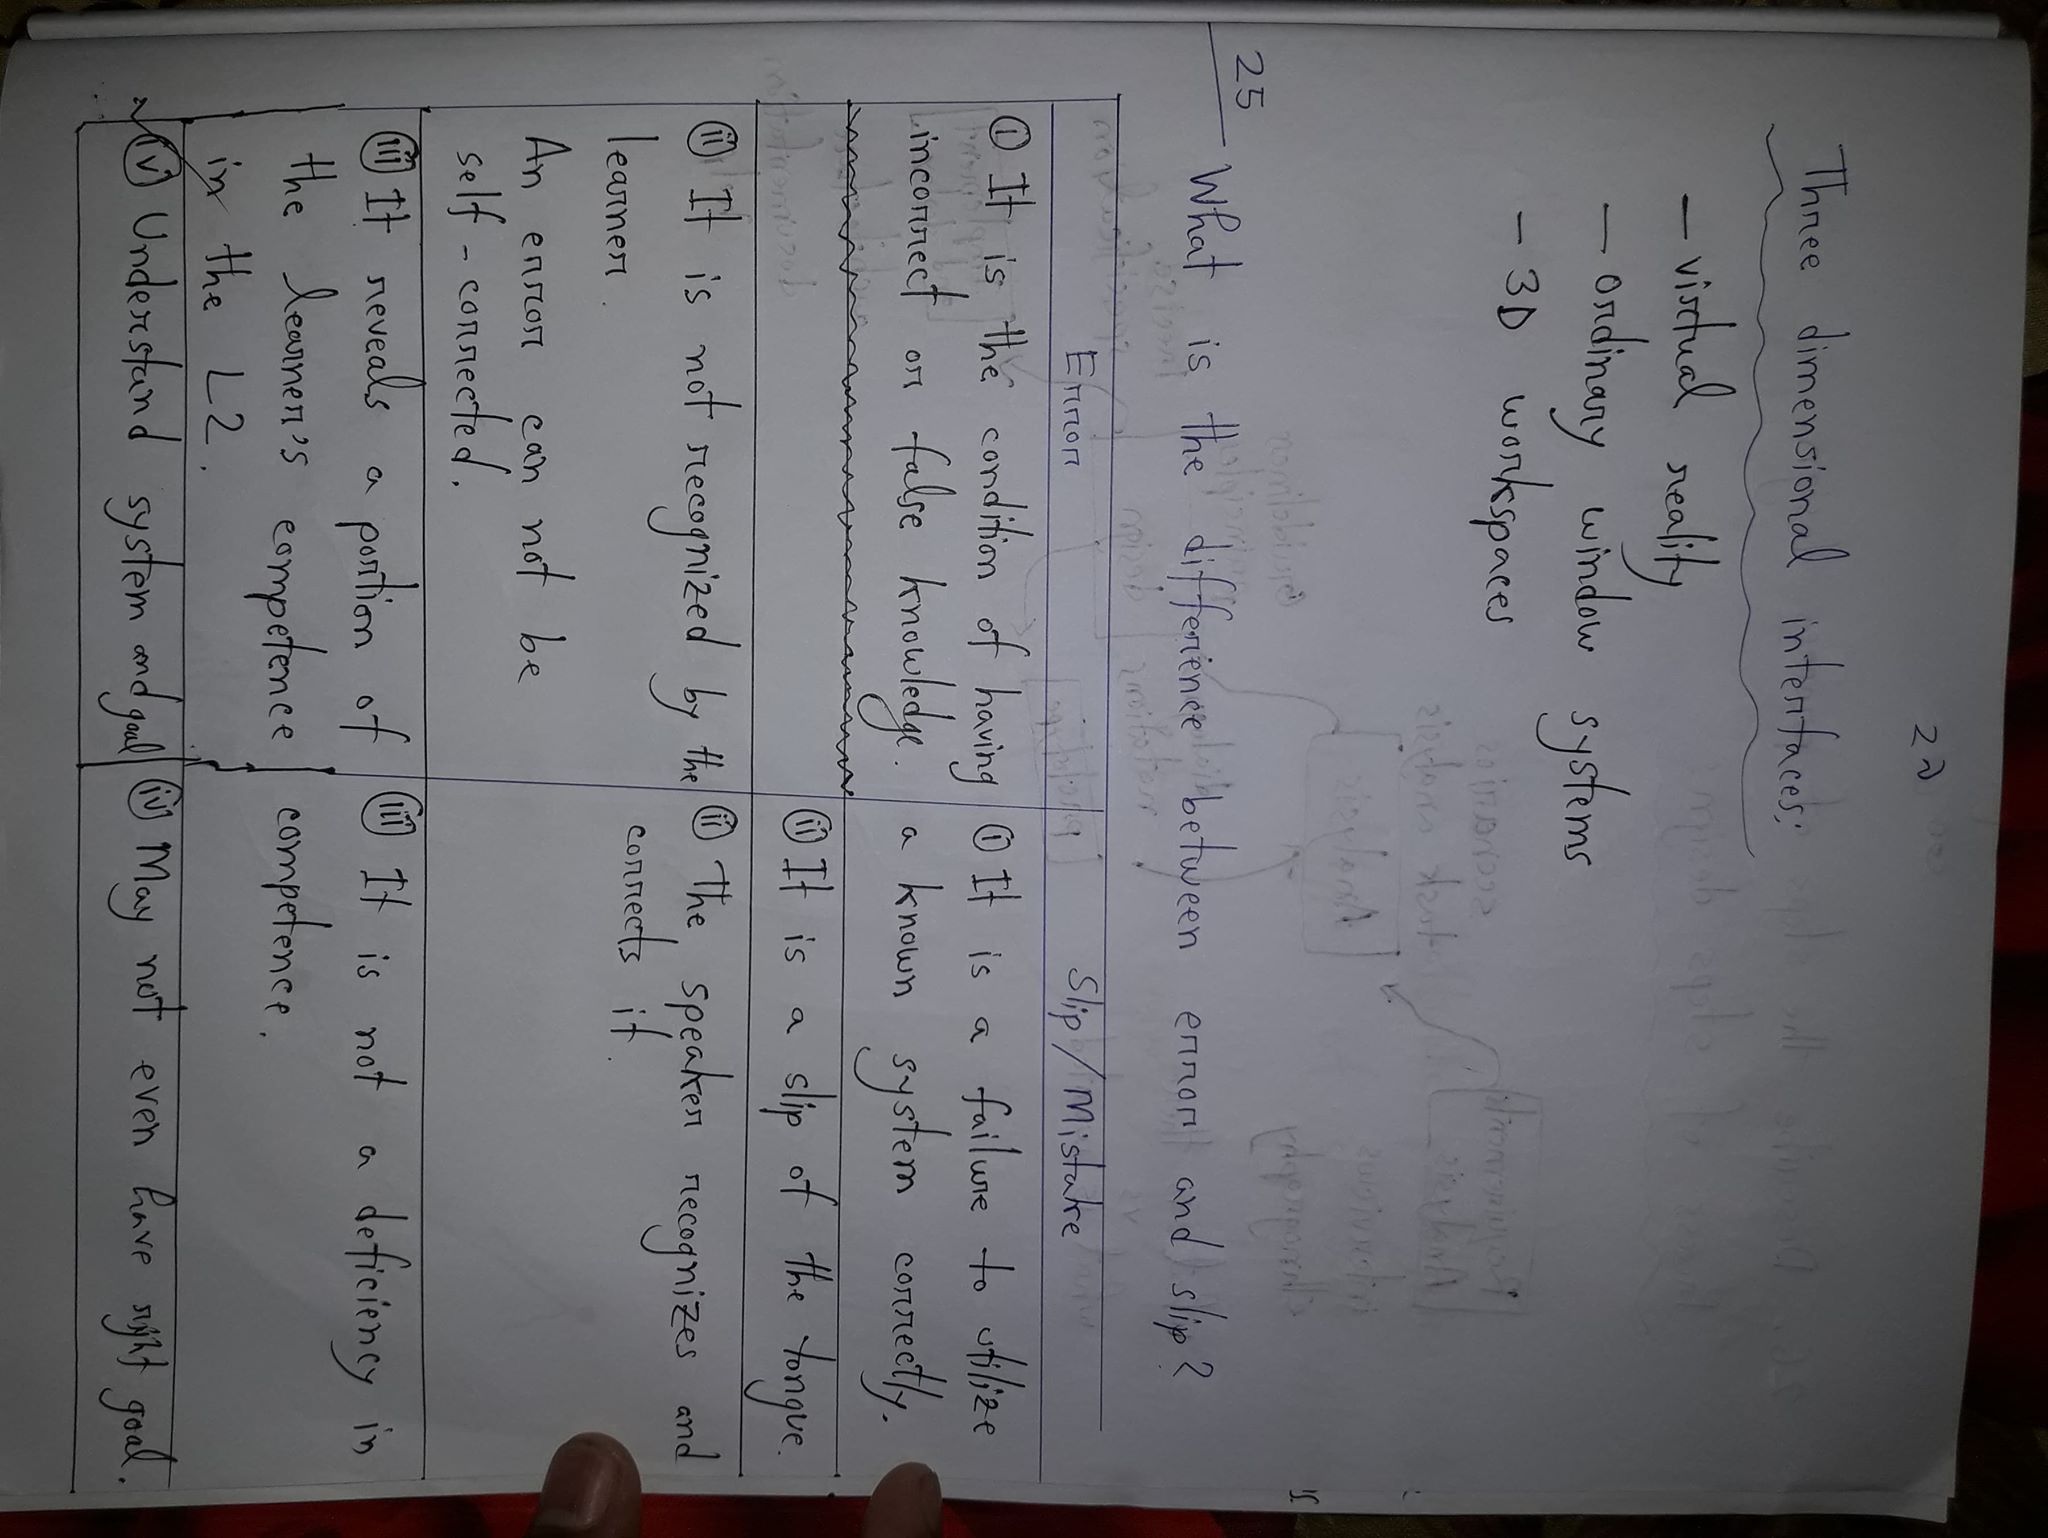 ২৯
Three dimensional interfaces:
– virtual reality
– ordinary window systems
– 3D workspaces
25
What is the difference between error and slip?
Error
Slip / Mistake
(i) It is the condition of having
incorrect or false knowledge.
(i) It is a failure to utilize
a known system correctly.
(ii) It is a slip of the tongue.
(ii) It is not recognized by the
learner.
An error can not be
self-corrected.
(ii) The speaker recognizes and
corrects it.
(iii) It reveals a portion of
the learner's competence
in the L2.
(iii) It is not a deficiency in
competence.
(iv) Understand system and goal
(iv) May not even have right goal.